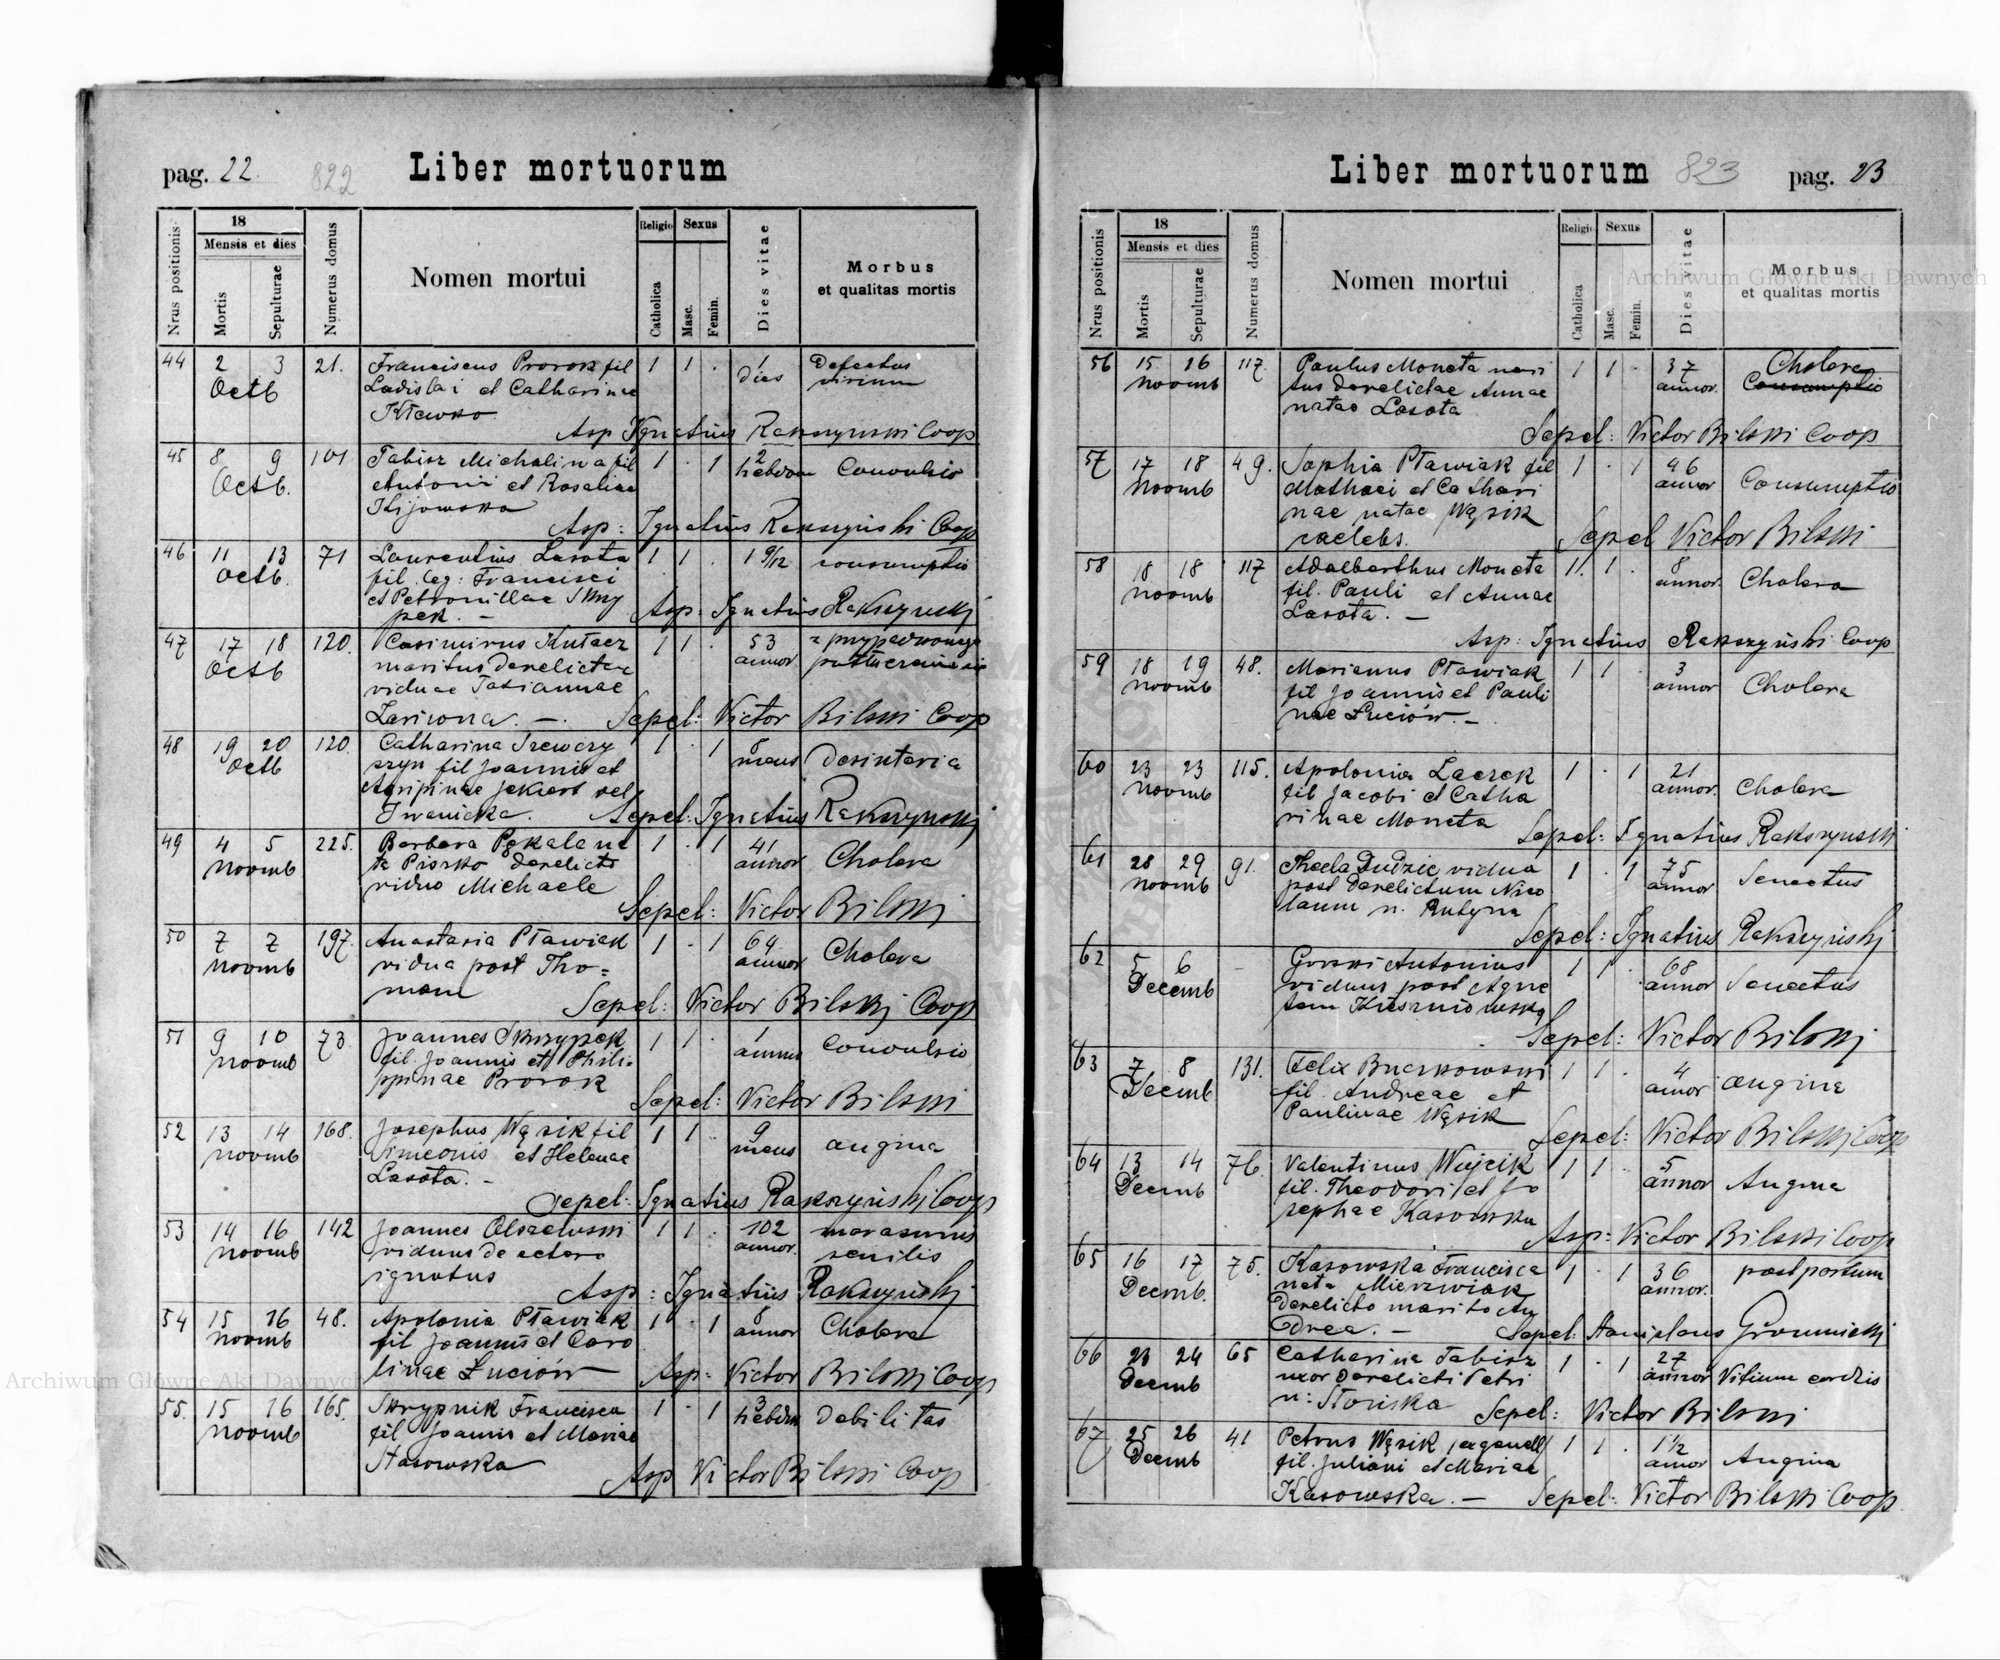 pag. 22.
822
Liber mortuorum
Nrus positionis
18
Mensis et dies
Mortis
Sepulturae
Numerus domus
Nomen mortui
Religio
Catholica
Sexus
Masc.
Femin.
Dies vitae
Morbus
et qualitas mortis
44 2 3 21. Franciscus Prorok fil 1 1 . 1 Defectus
Octb Ladislai et Catharinae dies virium
Asp Ignatius Rakszynski Coop
45 8 9 101 Tabisz Michalina fil 1 . 1 2 Convulsio
Octb. Antonii et Rosaliae hebdom
Kijowska
Asp: Ignatius Rakszynski Coop
46 11 13 71 Laurentius Lasota 1 1 . 1 9/12 consumptio
Octb. fil. leg: Francisci
et Petronillae Skrzy
pek. -
Asp: Ignatius Rakszynski
47 17 18 120. Casimirus Kułacz 1 1 . 53 z przypadkowego
Octb maritus derelictae annor
viduae Tatiannae
Sepel: Victor Bilski Coop
48 19 20 120. Catharina 1 . 1 desinteria
Octb szyn fil Joannis et mens
Agripinae vel
Iwanicka.
Sepel: Ignatius Rakszynski
49 4 5 225. Barbara 1 . 1 41 Cholera
Novmb derelicto annor
viduo Michaele
Sepel: Victor Bilski
50 7 7 197. Anastasia Pławiak 1 . 1 64 Cholera
Novmb vidua post Tho= annor
mam
Sepel: Victor Bilski Coop
51 9 10 73. Joannes Skrzypek 1 1 . 1 Convulsio
Novmb fil. Joannis et Phili annus
ppinae Prorok
Sepel: Victor Bilski
52 13 14 168. Josephus Wąsik fil 1 1 . 9 angina
Novmb Simeonis et Helenae mens
Lasota. -
Sepel: Ignatius Rakszynski Coop
53 14 16 142 Joannes Olszewski 1 1 . 102 marasmus
Novmb viduus de cetero annor. senilis
ignotus
Asp: Ignatius Rakszynski
54 15 16 48. Apolonia Pławiak 1 . 1 8 Cholera
Novmb fil Joannis et Caro annor
linae Łuciów
Asp: Victor Bilski Coop
55. 15 16 165. Skrypnik Francisca 1 . 1 3 debilitas
Novmb fil Joannis et Mariae hebdm
Asp Victor Bilski Coop
Liber mortuorum
823
pag. 23
Nrus positionis
18
Mensis et dies
Mortis
Sepulturae
Numerus domus
Nomen mortui
Religio
Catholica
Sexus
Masc.
Femin.
Dies vitae
Morbus
et qualitas mortis
56 15 16 117. Paulus Moneta mari 1 1 . 37 Cholera
Novmb tus derelictae Annae annor. Consumptio
natae Lasota
Sepel: Victor Bilski Coop
57 17 18 49. Sophia Pławiak fil 1 . 1 46 Consumptio
Novmb Mathaei et Cathari annor
nae natae Wąsik
caelebs.
Sepel Victor Bilski
58 18 18 117 Adalberthus Moneta 1 1 . 8 Cholera
Novmb fil. Pauli et Annae annor.
Lasota. -
Asp: Ignatius Rakszyński Coop
59 18 19 48. Marianus Pławiak 1 1 3 Cholera
Novmb fil Joannis et Pauli annor
nae Łuciów. -
60 23 23 115. Apolonia Laczek 1 . 1 21 Cholera
Novmb fil Jacobi et Catha annor.
rinae Moneta
Sepel: Ignatius Rakszynski
61 28 29 91. Thecla Dudzic vidua 1 . 1 75 Senectus
Novmb post derelictum Nico annor
laum n.
Sepel: Ignatius Rakszyński
62 5 6 - Gorski Antonius 1 1 . 68 Senectus
Decemb viduus post Agne annor
tem
Sepel: Victor Bilski
63 7 8 131. Felix Buczkowski 1 1 . 4 angina
Decmb fil. Andreae et annor
Paulinae Wąsik
Sepel: Victor Bilski Coop
64 13 14 76. Valentinus Wujcik 1 1 5 Angina
Decmb fil. Theodori et Jo annor
sephae Kasowska
Asp: Victor Bilski Coop
65 16 17 75. Kasowska Francisca 1 . 1 36 post partum
Decmb. nata Mierzwiak annor.
derelicto marito An
drea. -
Sepel: Stanislaus Gromnicki
66 23 24 65 Catharina Tabisz 1 . 1 27 Vitium cordis
Decmb uxor derelicti Petri annor
n:
Sepel: Victor Bilski
67 25 26 41 Petrus Wąsik 1 1 . 1 1/2 Angina
Decmb fil. Juliani et Mariae annor
Kasowska. -
Sepel: Victor Bilski Coop
Archiwum Główne Akt Dawnych
Archiwum Główne Akt Dawnych